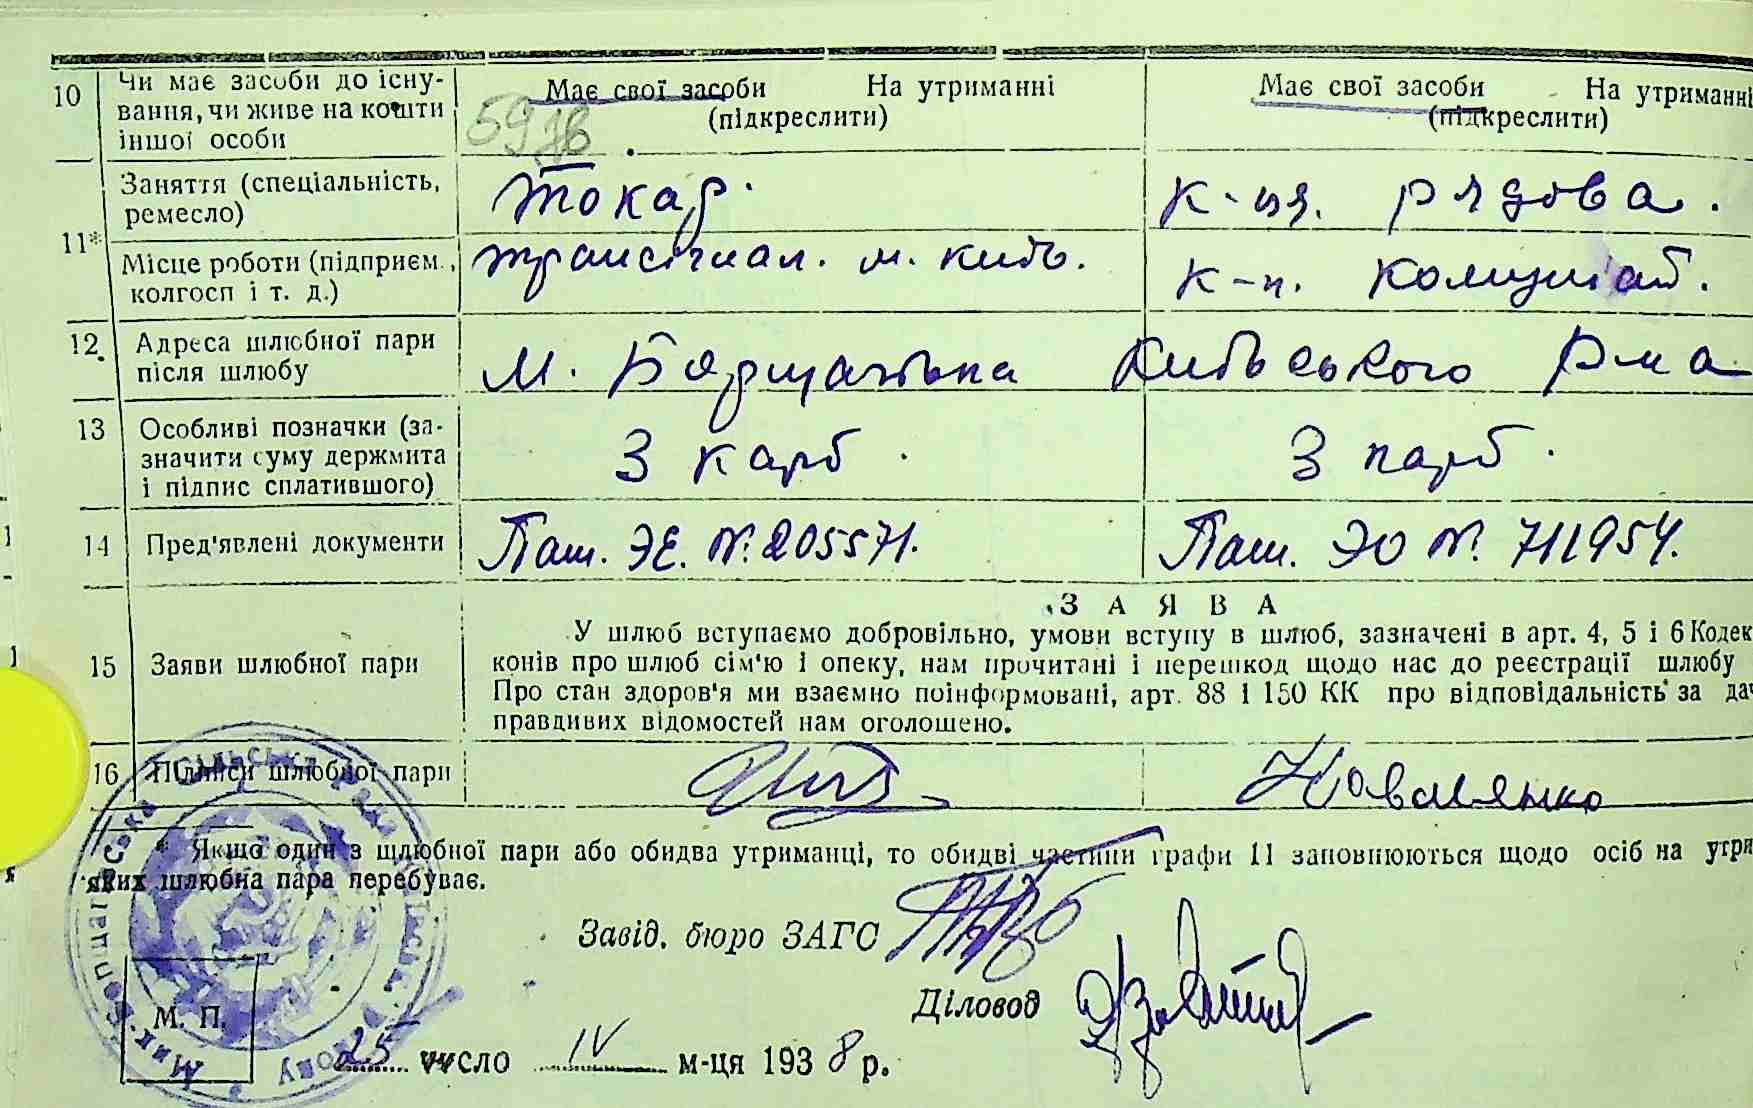 10 Чи має засоби до існу- Має свої засоби На утриманні Має свої засоби На утриманні
вання, чи живе на кошти (підкреслити) (підкреслити)
іншої особи 59
Заняття (спеціальність, Токар. к-ця. рядова.
ремесло)
11*
Місце роботи (підприєм., м. Київ. к-п. Комунар.
колгосп і т. д.)
12. Адреса шлюбної пари М. Борщагівка Київського р-на
після шлюбу
13 Особливі позначки (за- 3 карб. 3 карб.
значити суму держмита
і підпис сплатившого)
14 Пред'явлені документи Паш. ЭЕ. №. 205571. Паш. ЭО №. 711954.
ЗАЯВА
У шлюб вступаємо добровільно, умови вступу в шлюб, зазначені в арт. 4, 5 і 6 Кодек
15 Заяви шлюбної пари конів про шлюб сім'ю і опеку, нам прочитані і перешкод щодо нас до реєстрації шлюбу
Про стан здоров'я ми взаємно поінформовані, арт. 88 і 150 КК про відповідальність за дач
правдивих відомостей нам оголошено.
16 Підписи шлюбної пари Коваленко
* Якщо один з шлюбної пари або обидва утриманці, то обидві частини графи 11 заповнюються щодо осіб на утри
яких шлюбна пара перебуває.
Завід. бюро ЗАГС
Діловод
М. П.
25 число IV м-ця 1938 р.